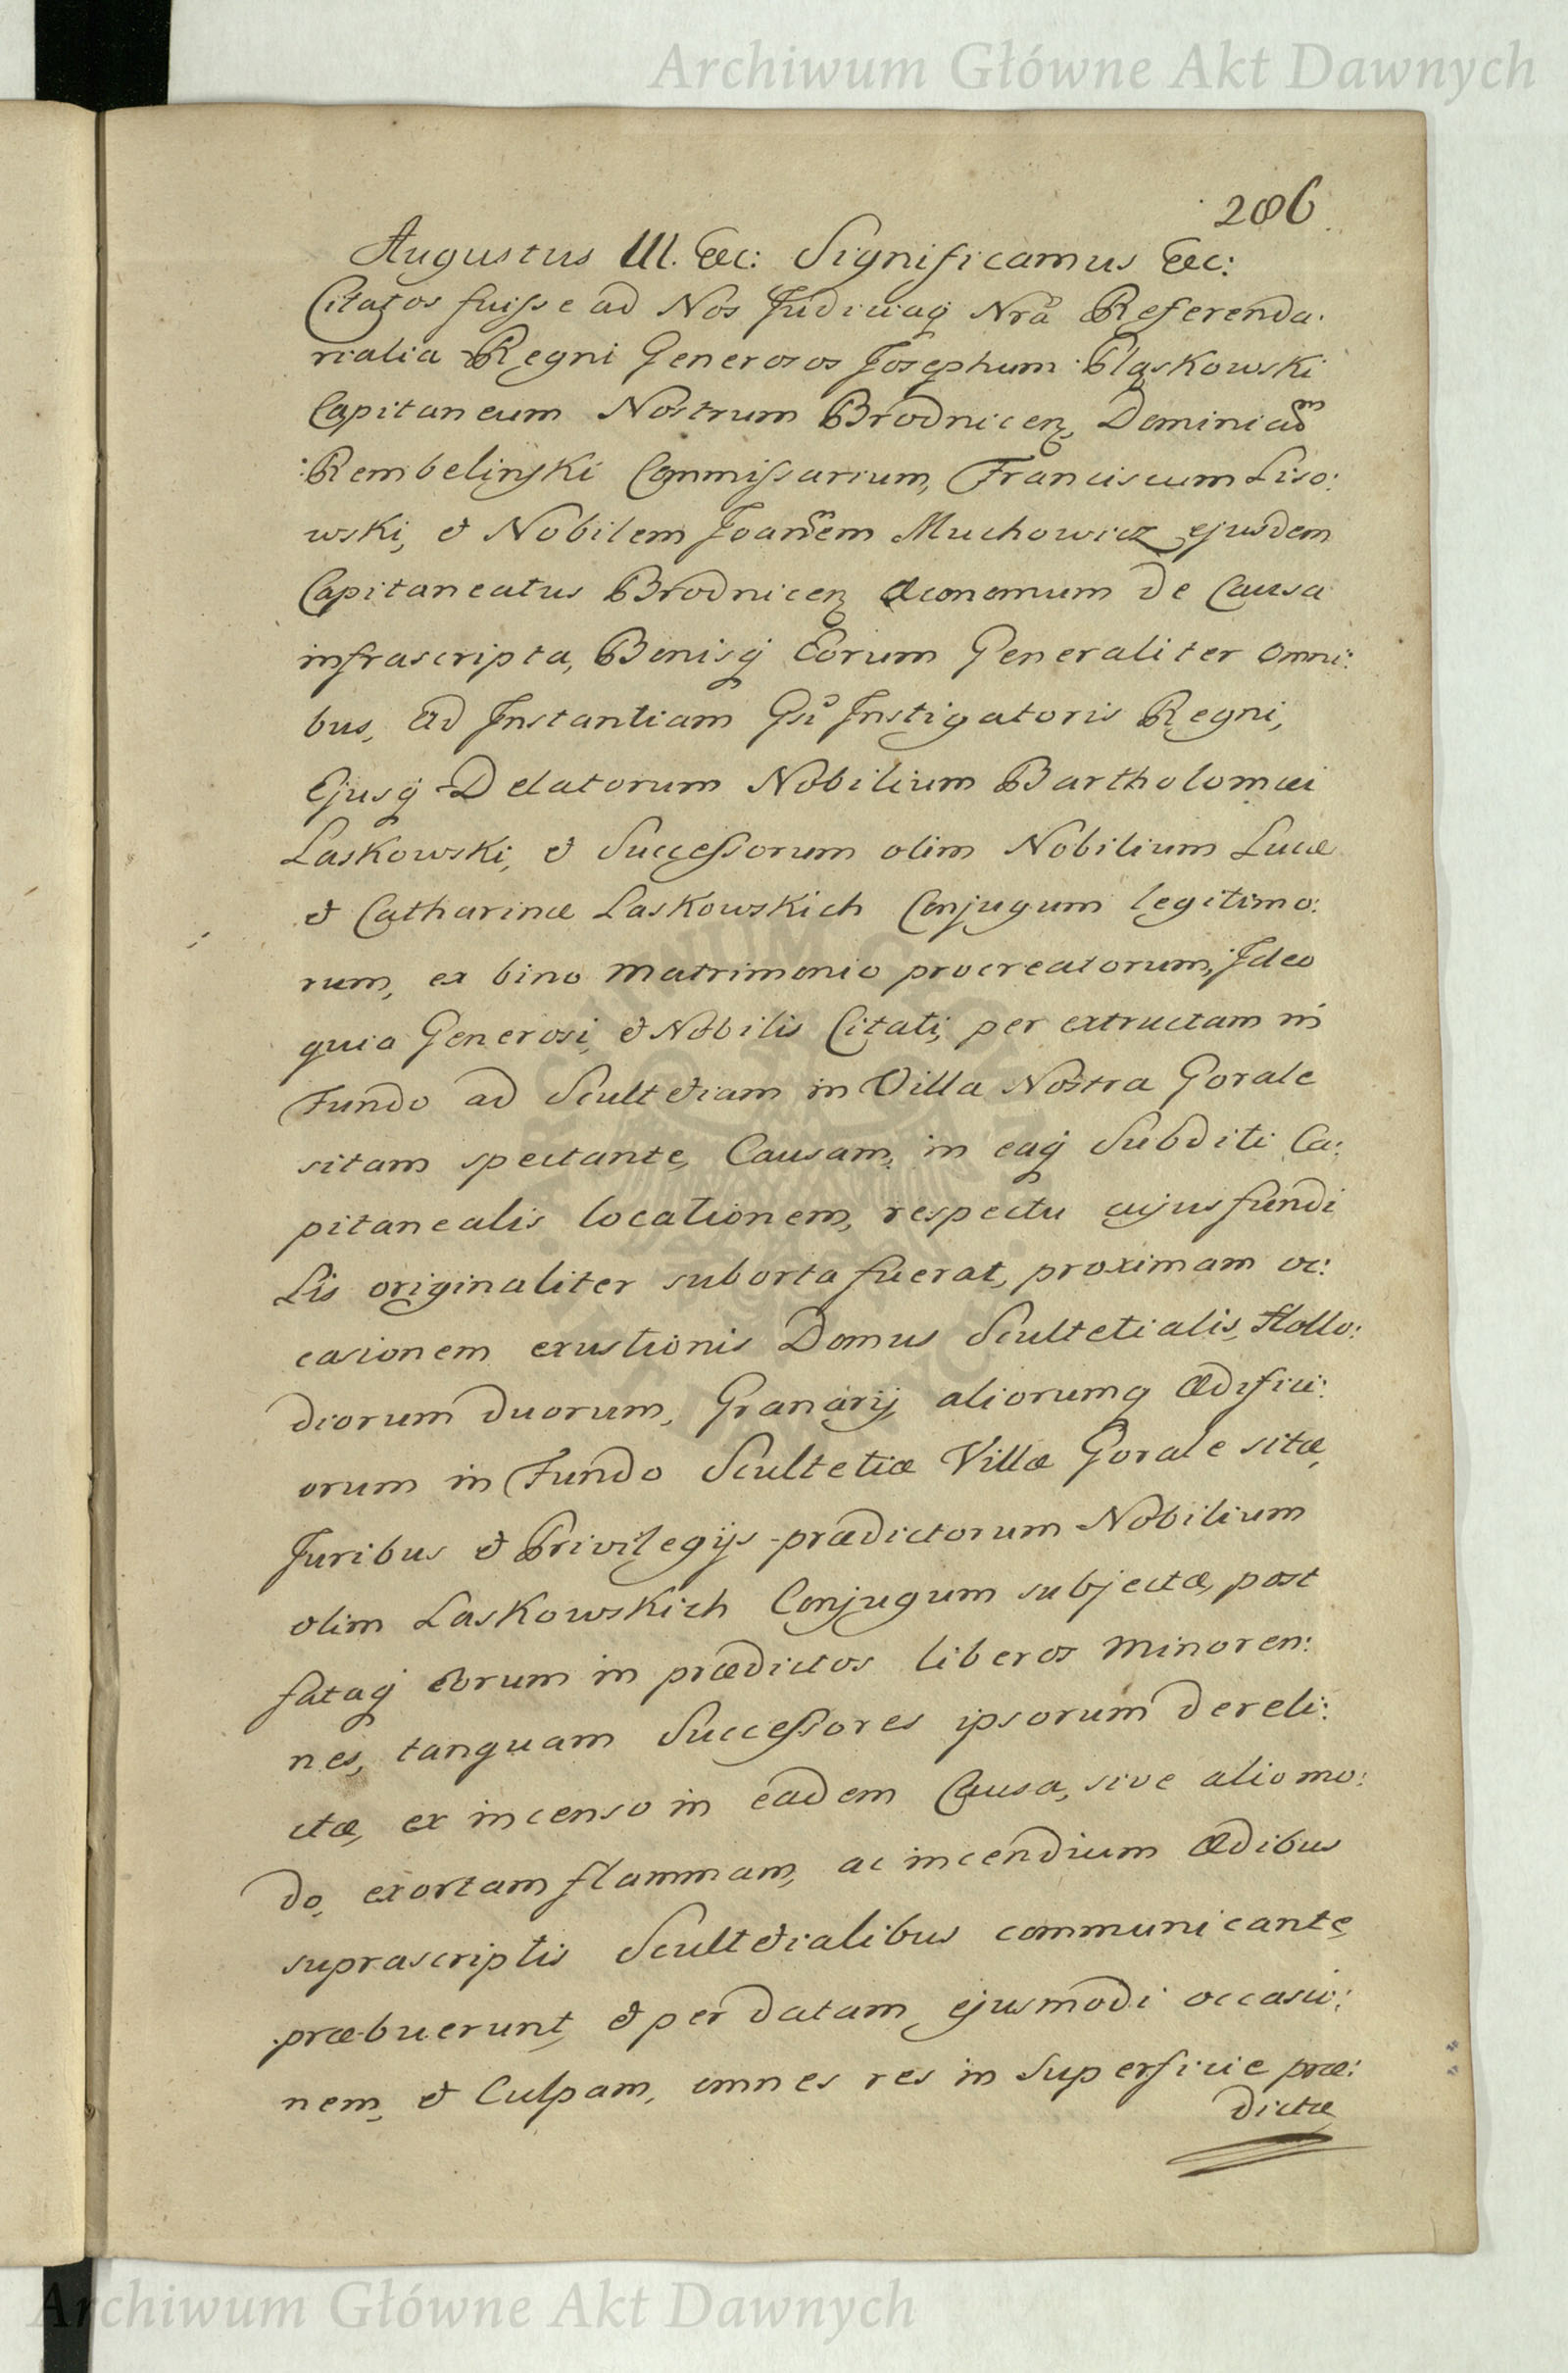 Archiwum Główne Akt Dawnych
206
Augustus III. &c: Significamus &c:
Citatos fuisse ad Nos Judiciaq Nrã Referenda:
rialia Regni Generosos Josephum Pląskowski
Capitaneum Nostrum Brodnicen, Dominicũm
Rembelinski Commissarium, Franciscum Liso:
wski, et Nobilem Joañem Muchowicz ejusdem
Capitaneatus Brodnicen Œconomum de Causa
infrascripta, Bonisq Eorum Generaliter omni:
bus, ad Instantiam Gsi Instigatoris Regni,
Ejusq Delatorum Nobilium Bartholomæi
Laskowski, et Successorum olim Nobilium Lucæ
et Catharinæ Laskowskich Conjugum legitimo:
rum, ex bino matrimonio procreatorum, Ideo
quia Generosi, et Nobilis Citati, per extructam in
Fundo ad Scultetiam in Villa Nostra Gorale
sitam spectante, Causam, in eaq Subditi Ca:
pitanealis locationem, respectu cujus fundi
Lis originaliter suborta fuerat, proximam oc:
casionem exustionis Domus Scultetialis, Hollo:
diorum duorum, Granarij, aliorumq ædifici:
orum in Fundo Scultetiæ Villæ Gorale sitæ,
Juribus et Privilegijs prædictorum Nobilium
olim Laskowskich Conjugum subjectæ, post
fataq eorum in prædictos liberos minoren:
nes, tanquam Successores ipsorum dereli:
ctæ, ex incenso in eadem Causa, sive alio mo:
do, exortam flammam, ac incendium ædibus
suprascriptis Scultetialibus communicante,
præbuerunt, et per datam ejusmodi occasio:
nem, et Culpam, omnes res in superficie præ:
dictæ
ARCHIWUM GŁÓWNE AKT DAWNYCH
Archiwum Główne Akt Dawnych